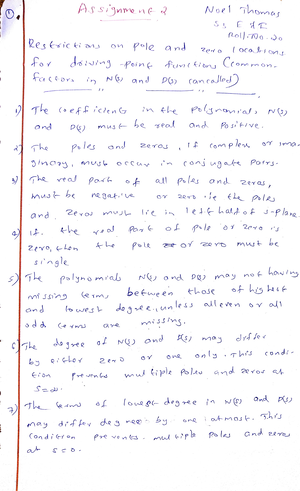 ①. Assignment-2 Noel Thomas
S5 E & E
Roll:No-20
Restrictions on pole and zero locations
for driving-point functions (Common-
factors in N(s) and D(s) cancelled)
1) The coefficients in the polynomials N(s)
and D(s) must be real and positive.
2) The poles and zeros, if complex or ima-
ginary, must occur in conjugate pairs.
3) The real part of all poles and zeros,
must be negative or zero ie the poles
and zeros must lie in left half of s-plane.
4) If the real part of pole or zero is
zero, then the pole or zero must be
single
5) The polynomials N(s) and D(s) may not having
missing terms between those of highest
and lowest degree, unless all even or all
odd terms are missing.
6) The degree of N(s) and D(s) may differ
by either zero or one only. This condi-
tion prevents multiple poles and zeros at
s=∞.
7) The terms of lowest degree in N(s) and D(s)
may differ degree by one atmost. This
condition prevents multiple poles and zeros
at s=0.